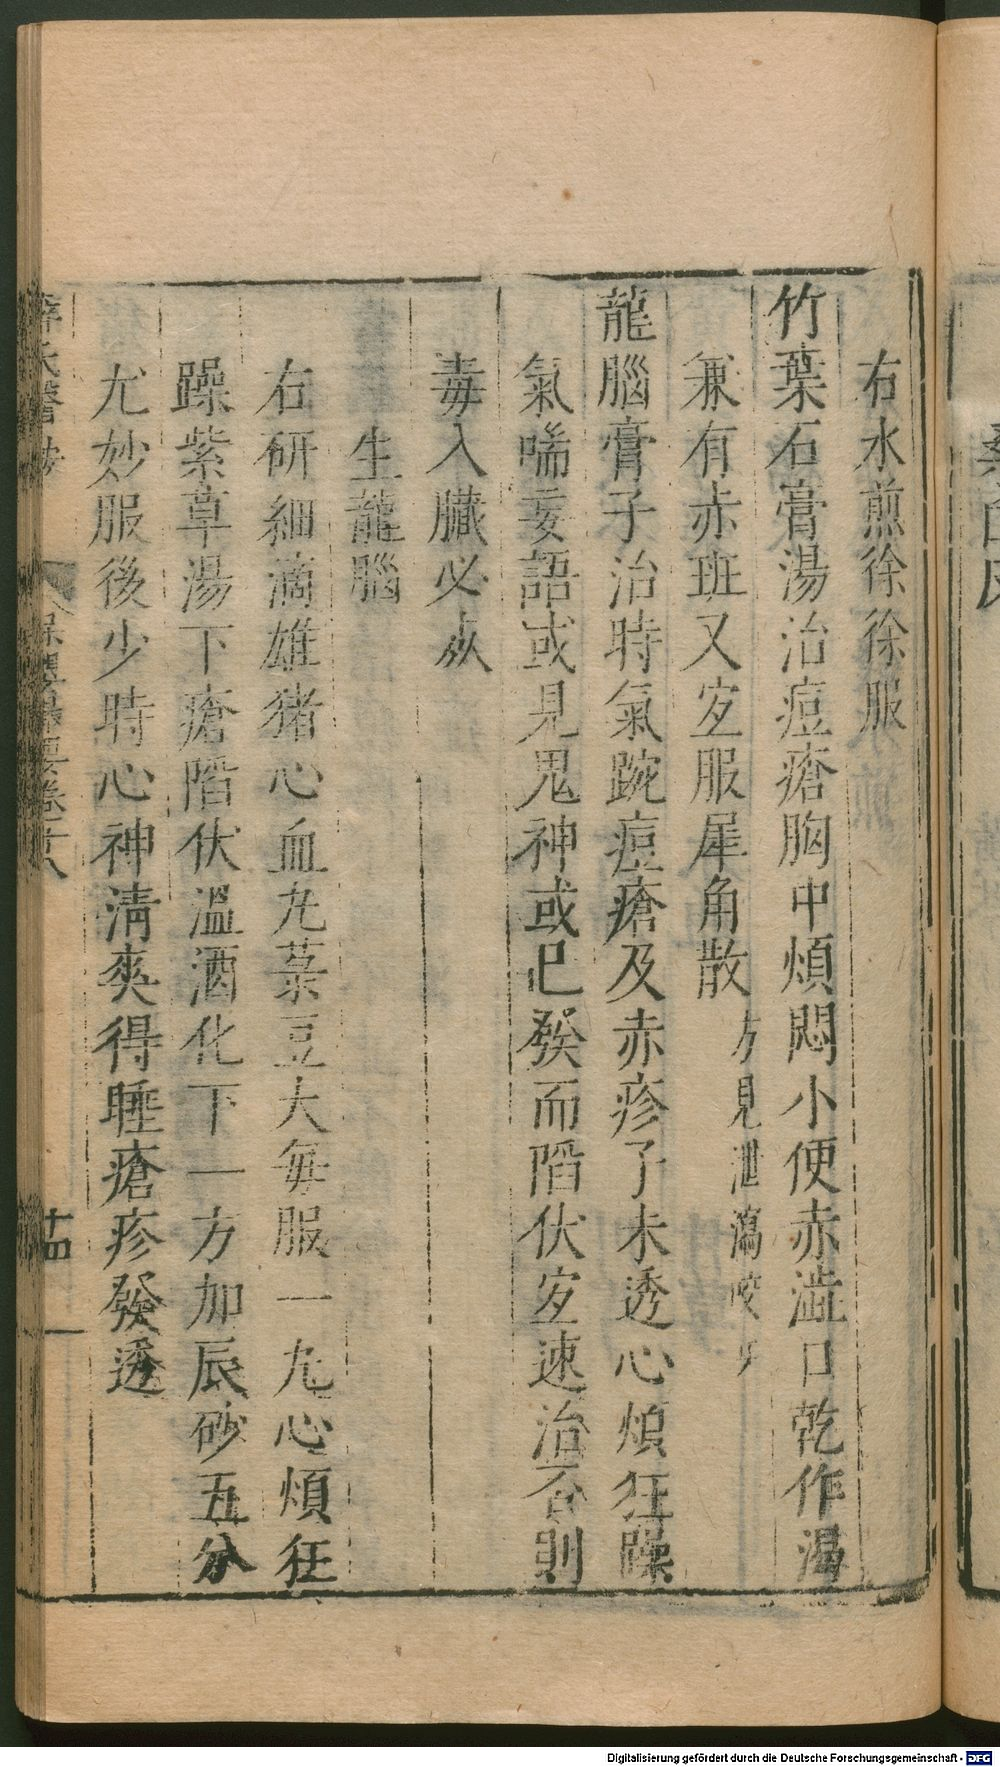 右水煎徐徐服
竹葉石膏湯治痘瘡胸中煩悶小便赤澁口乾作渴
兼有赤班又宜服犀角散方見泄瀉咬牙
龍腦膏子治時氣踠痘瘡及赤疹子未透心煩狂躁
氣喘妄語或見鬼神或已發而陷伏宜速治否則
毒入臟必死
生龍腦
右研細滴雄猪心血丸菉豆大每服一丸心煩狂
躁紫草湯下瘡陷伏溫酒化下一方加辰砂五分
尤妙服後少時心神清爽得睡瘡疹發透
薛氏醫按 保嬰撮要卷十八 十四
Digitalisierung gefördert durch die Deutsche Forschungsgemeinschaft - DFG